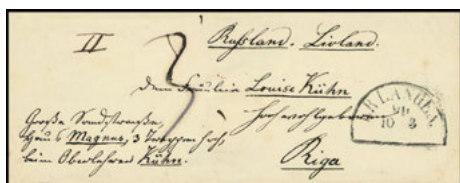 II
3
Rußland. Livland.
Dem Fräulein Louise Kühn
Hochwohlgeboren
ERLANGEN
10 3
Große Sandstraße,
Haus Magnus, 3 Treppen hoch,
beim Oberlehrer Kühn.
Riga